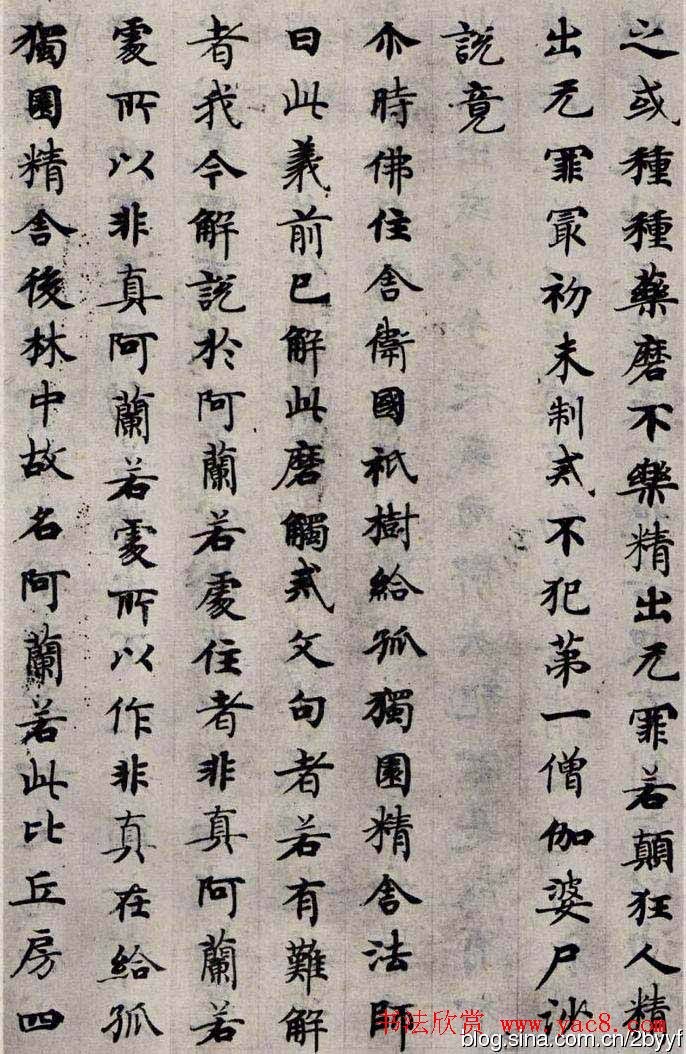 之或種種藥磨不樂精出无罪若顛狂人精
出无罪冣初未制戒不犯第一僧伽婆尸沙
說竟
尒時佛住舍衛國祇樹給孤獨園精舍法師
曰此義前已解此磨觸戒文句者若有難解
者我今解說於阿蘭若處住者非真阿蘭若
處所以非真阿蘭若處所以作非真在給孤
獨園精舍後林中故名阿蘭若此比丘房四
书法欣赏 www.yac8.com
blog.sina.com.cn/2byyf